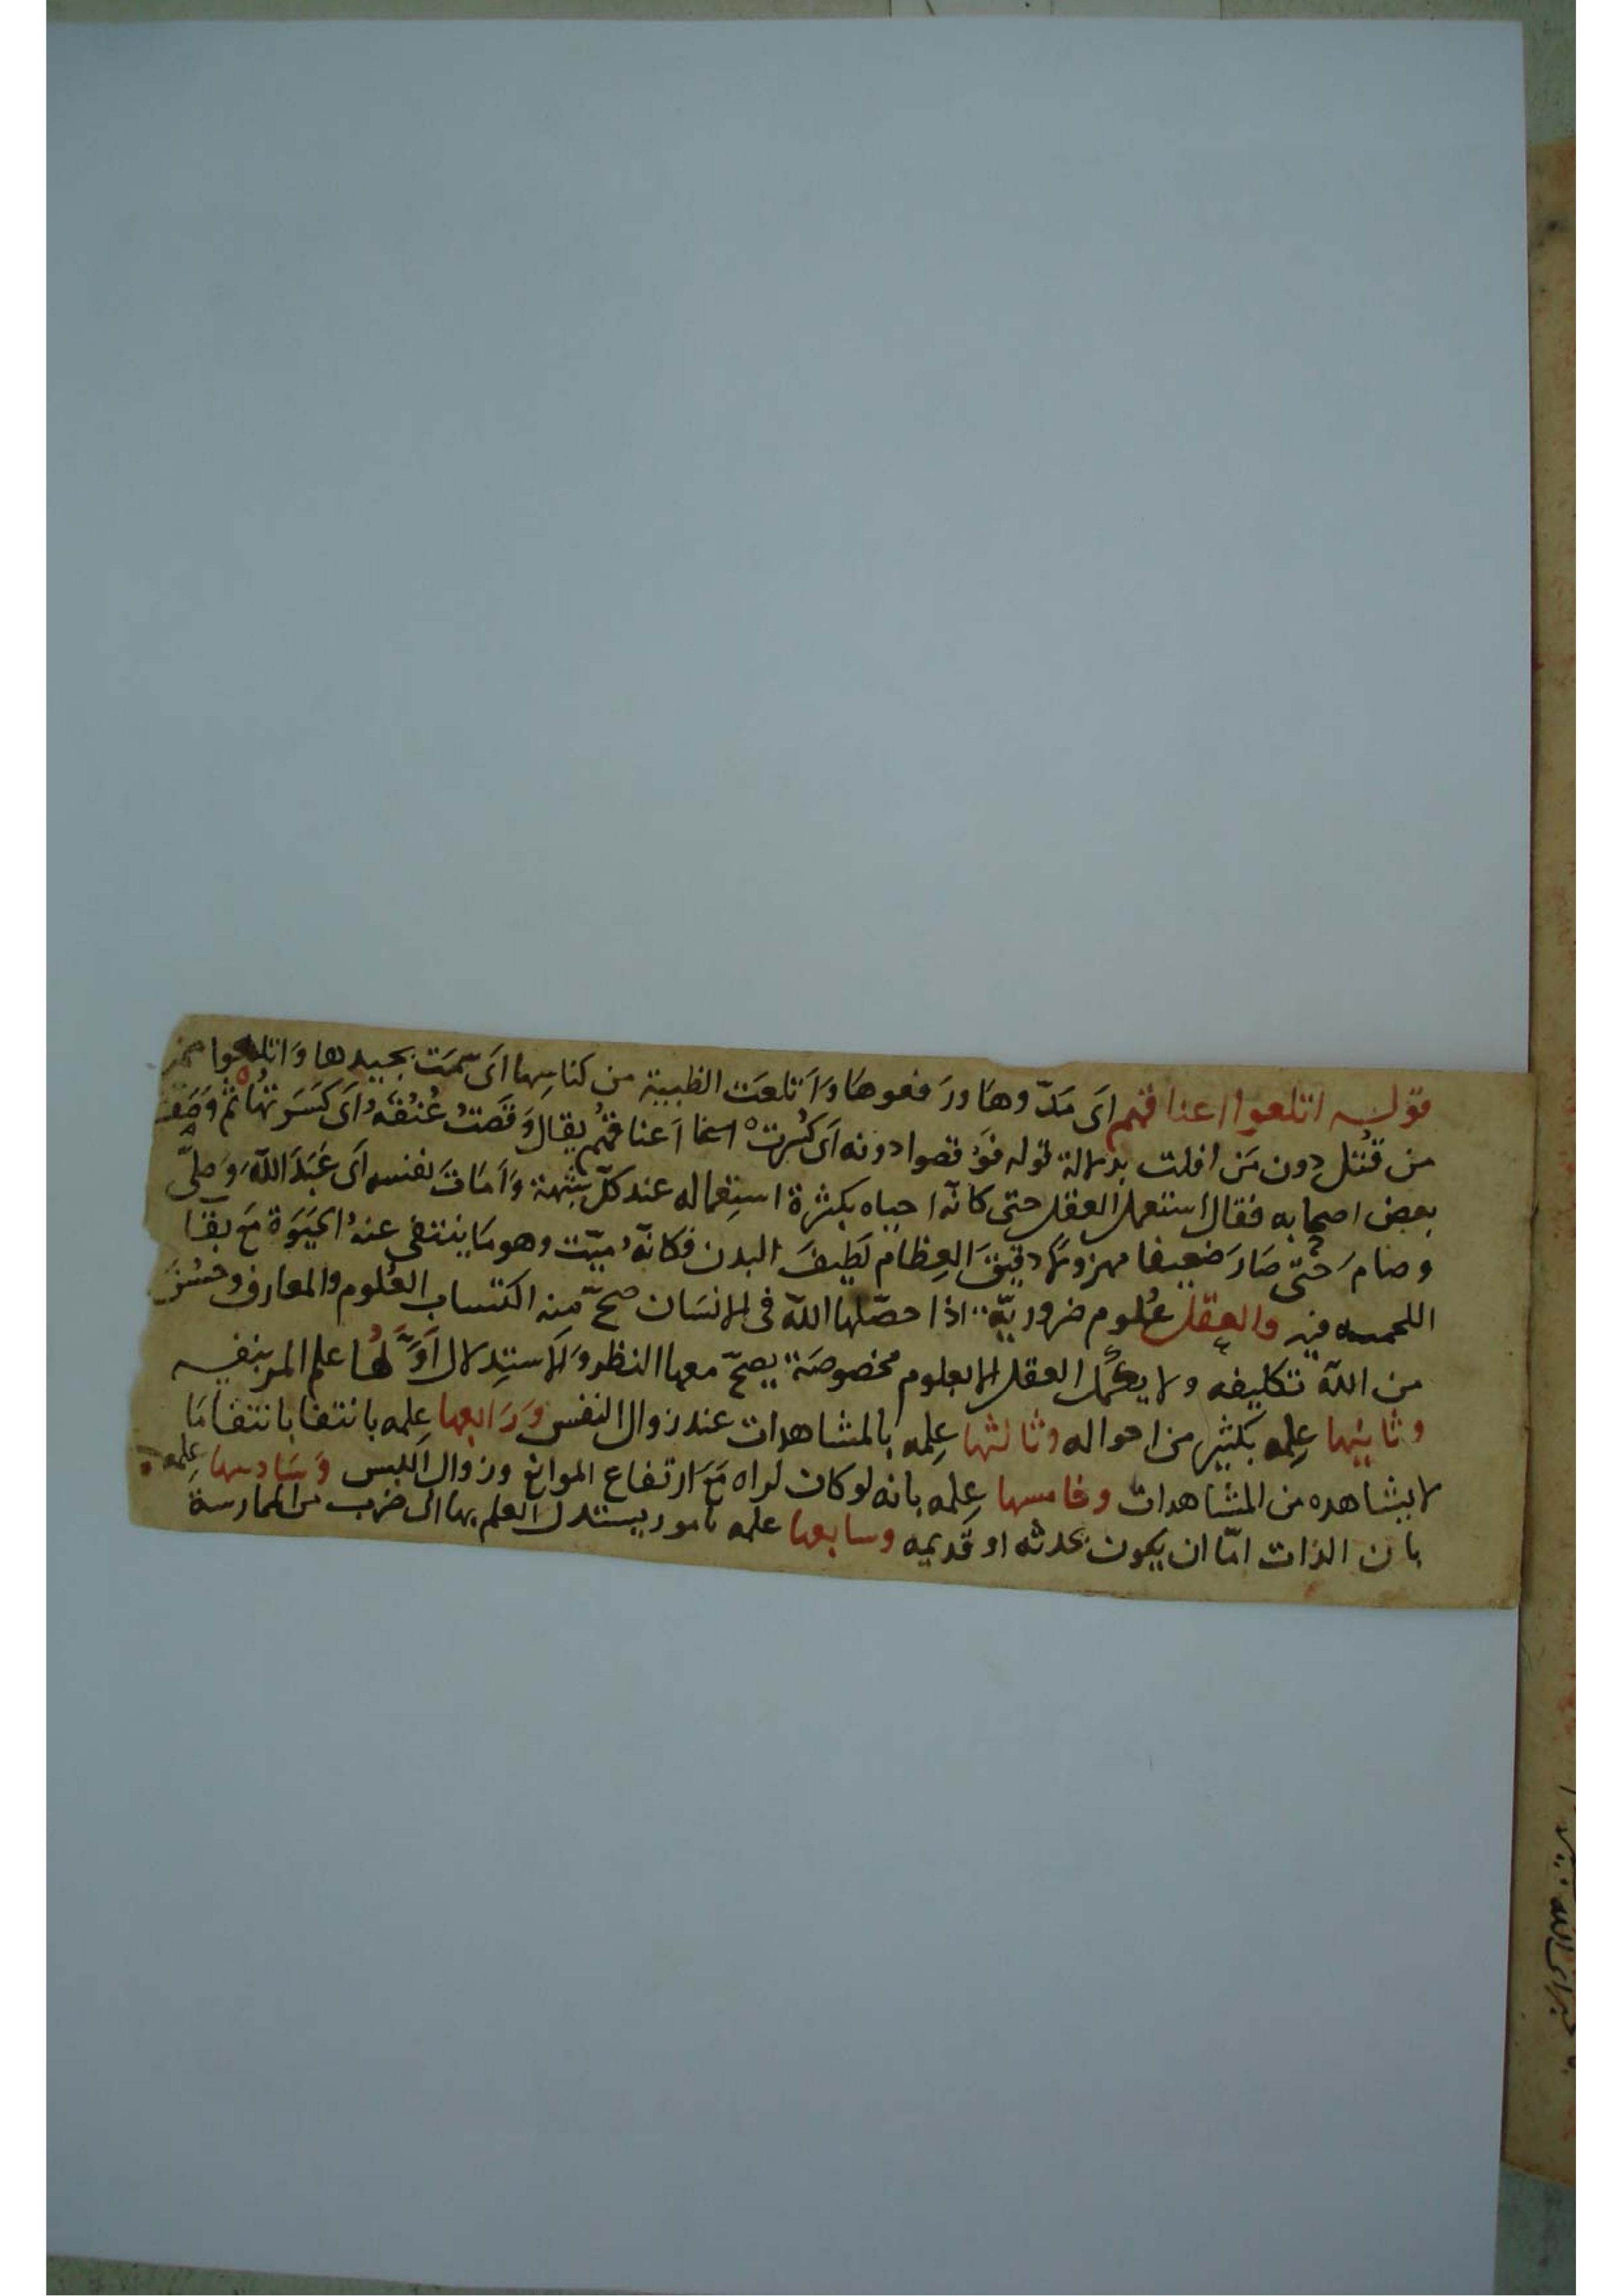 قوله اتلعوا اعناقهم اى مدّوها ورفعوها وَاَتلعَت الظبية من كناسِها اى سمَت بجيدها وَاتلعوا
من قُتل دون مَن افلت بدلالة قوله فوُقصوا دونه اى كُسِرتْ اعناقهُم يقال وَقَصتُ عُنُقَهُ اى كَسَرتُهَا ثم وَصَفَ
بعض اصحابه فقال استعمل العقل حتى كانّه احياه بكثرة استِعماله عند كلّ شبُهة وَاَمَاتَ نفسه اى عَبَدَ اللّٰه وَصلىّ
وصامَ حَتّى صَارَ ضعيفا مهزولا دقيقَ العِظام لَطِيفَ البدن فكانّهُ ميّت وهو مَا ينتفى عنهُ الحَيَوة مَع بقا
فيه والعقل عُلوم ضروريّة اذا حصّلها اللّٰه فى الانسَان صحّ منه اكتساب العُلوم والمعارف وحسُنَ
من اللّٰه تكليفه ولا يكمُل العقل الا بعلوم مخصوصَة يصحّ معها النظر وَالاستِدلال اَوّلُهَا علم المر بنفسِه
وثانيها عِلمه بكثير من احواله وثالثها عِلمه بالمشاهدات عند زوال اللبس وَرَابعها عِلمه بانتفا بانتفا مَا
لا يشاهده من المشاهدات وخامسها عِلمه بانه لو كان لراه مَعَ ارتفاع الموانع وزوال اللبس وَسَادسها عِلمه
بان الذات امّا ان يكون محدثه او قديمه وسابعها علمه بامور يستند العلم بها الى ضرب من الممارسة